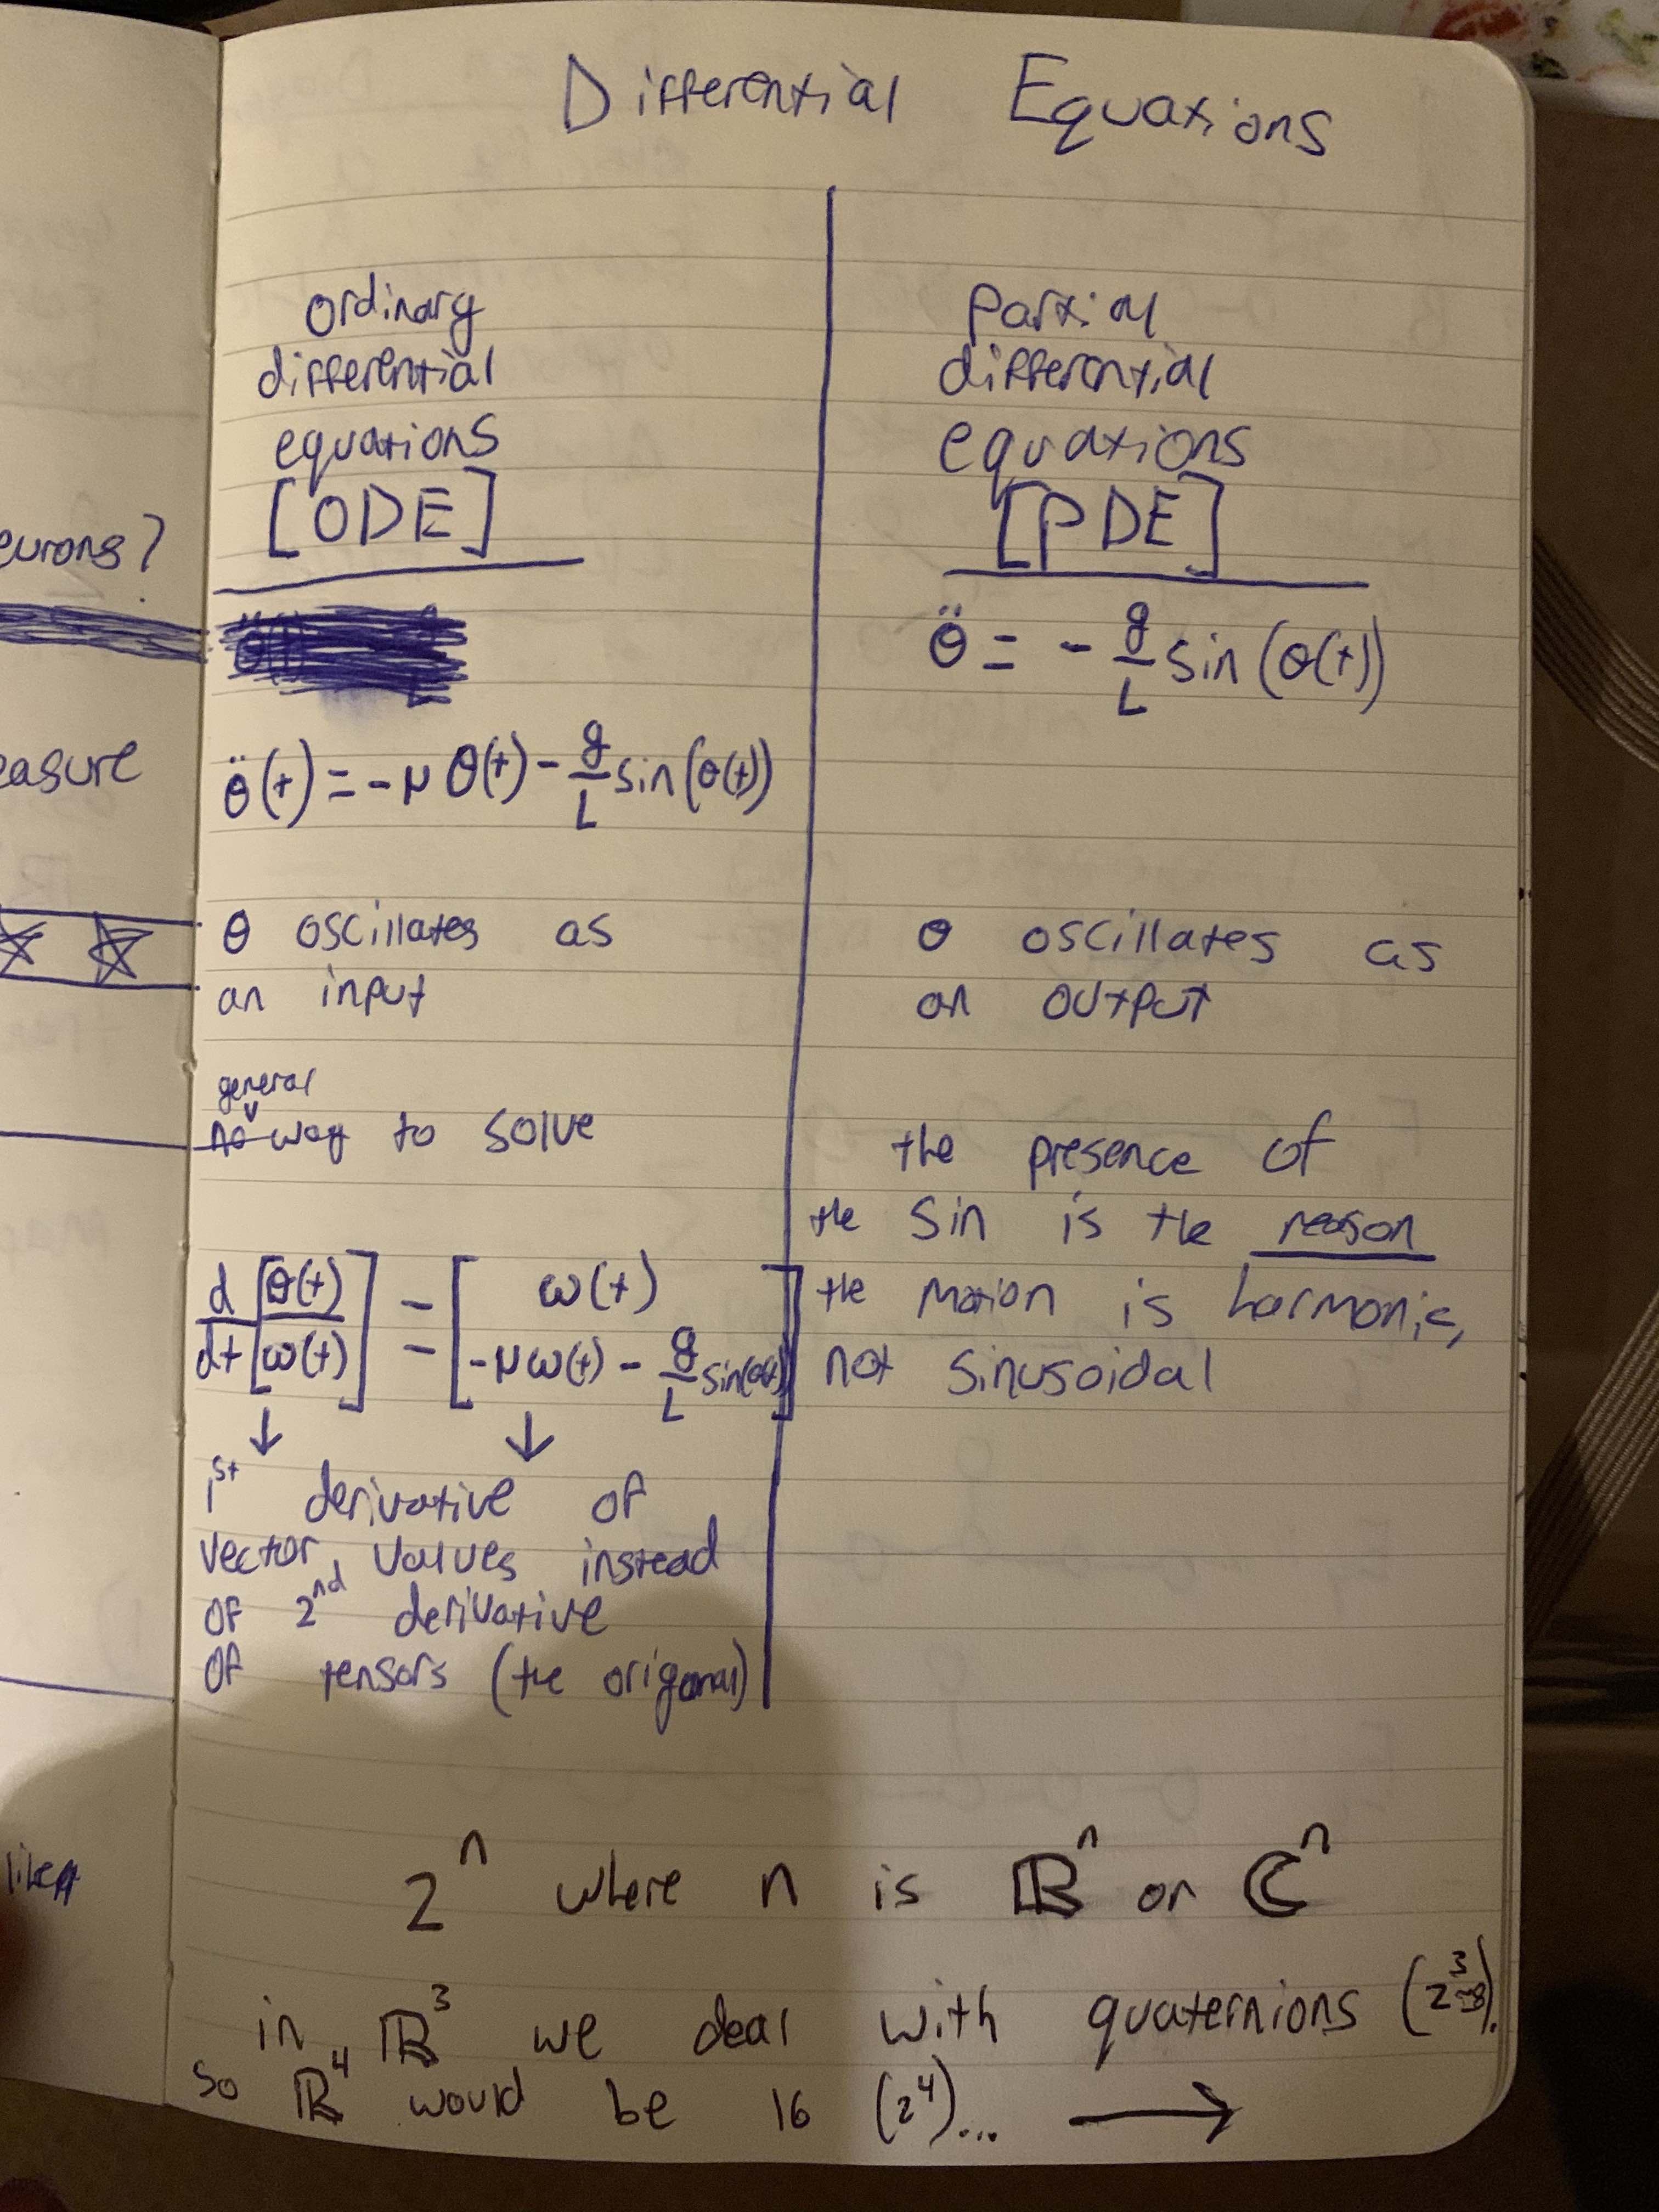 Differential Equations
ordinary
differential
equations
[ODE]
θ̈(t) = -μ θ(t) - g/L sin(θ(t))
θ oscillates as
an input
general
no way to solve
d/dt [θ(t) / ω(t)] = [ω(t) / -μω(t) - g/L sin(θ(t))]
↓ ↓
1st derivative of
vector values instead
of 2nd derivative
of tensors (the origonal)
Partial
differential
equations
[PDE]
θ̈ = - g/L sin(θ(t))
θ oscillates as
an output
the presence of
the sin is the reason
the motion is harmonic,
not sinusoidal
2ⁿ where n is ℝⁿ or ℂⁿ
in ℝ³ we deal with quaternions (2³=8).
so ℝ⁴ would be 16 (2⁴)... →
eurons?
easure
like